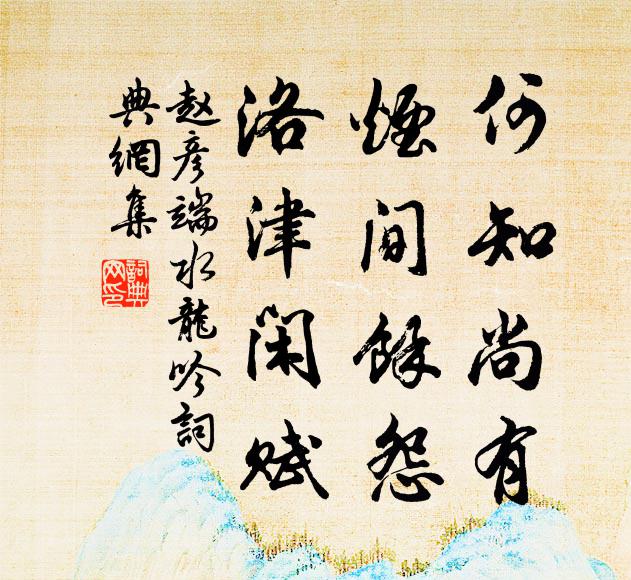 何知尚有
煙間餘怨
洛津閑賦
赵彦端水龍吟詞
典網集
詞典
网印